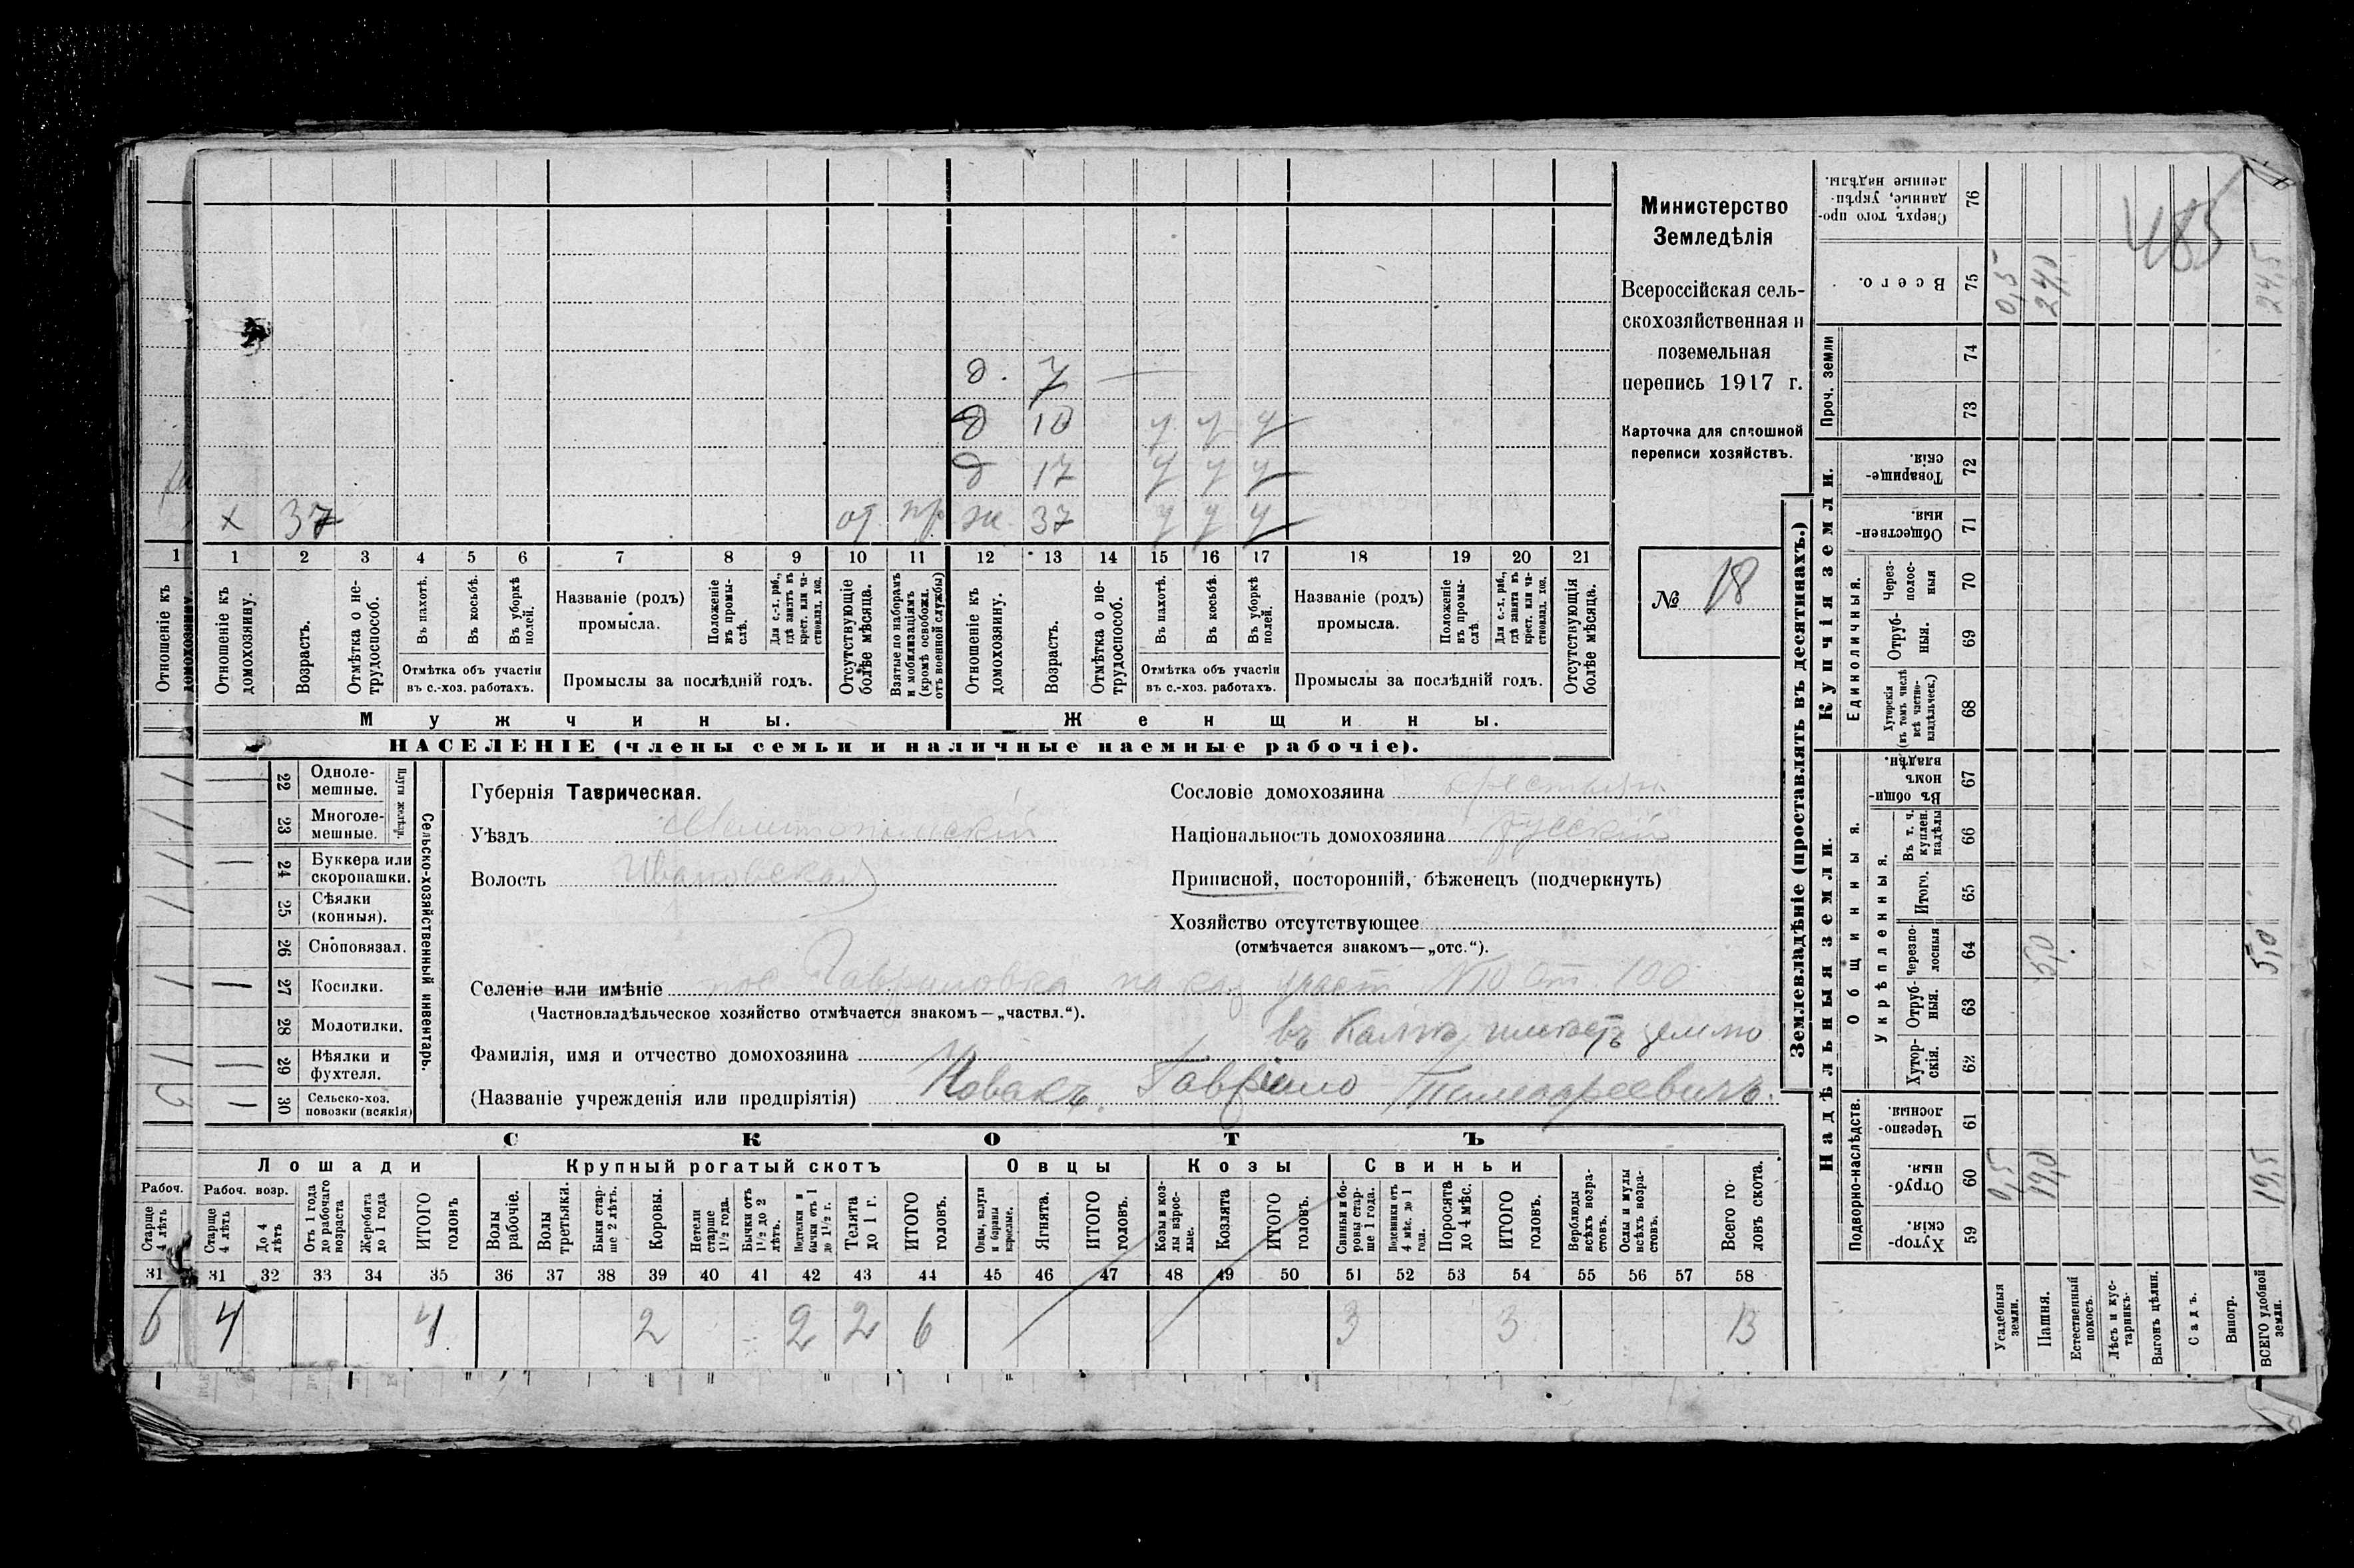 Министерство
Земледѣлія
Всероссійская сель-
скохозяйственная и
поземельная
перепись 1917 г.
Карточка для сплошной
переписи хозяйствъ.
№ 18
д. 7 —
д 10 у у у
д 17 у у у
х 37 от пр ж. 37 у у у
1 1 2 3 4 5 6 7 8 9 10 11 12 13 14 15 16 17 18 19 20 21
Отношеніе къ домохозяину.
Отношеніе къ домохозяину.
Возрастъ.
Отмѣтка о не-трудоспособ.
Въ пахотѣ.
Въ косьбѣ.
Въ уборкѣ полей.
Отмѣтка объ участіи въ с.-хоз. работахъ.
Названіе (родъ) промысла.
Положеніе въ промы-слѣ.
Для с.-х. раб., гдѣ занятъ въ крест. или ча-стновлад. хоз.
Промыслы за послѣдній годъ.
Отсутствующіе болѣе мѣсяца.
Взятые по наборамъ и мобилизаціямъ (кромѣ освобожд. отъ военной службы)
Отношеніе къ домохозяину.
Возрастъ.
Отмѣтка о не-трудоспособ.
Въ пахотѣ.
Въ косьбѣ.
Въ уборкѣ полей.
Отмѣтка объ участіи въ с.-хоз. работахъ.
Названіе (родъ) промысла.
Положеніе въ промы-слѣ
Для с.-х. раб., гдѣ занята въ крест. или ча-стновлад. хоз.
Промыслы за послѣдній годъ.
Отсутствующія болѣе мѣсяца.
Мужчины.
Женщины.
НАСЕЛЕНІЕ (члены семьи и наличные наемные рабочіе).
Сельско-хозяйственный инвентарь.
22 Одноле-мешные.
23 Многоле-мешные.
24 Буккера или скоропашки.
25 Сѣялки (конныя).
26 Сноповязал.
27 Косилки.
28 Молотилки.
29 Вѣялки и фухтеля.
30 Сельско-хоз. повозки (всякія)
Губернія Таврическая.
Уѣздъ Мелитопольскій
Волость Ивановская
Сословіе домохозяина крестьян.
Національность домохозяина русскій
Приписной, посторонній, бѣженецъ (подчеркнуть)
Хозяйство отсутствующее
(отмѣчается знакомъ—„отс.“).
Селеніе или имѣніе пос Гавриловка на каз участ №10 от. 100
(Частновладѣльческое хозяйство отмѣчается знакомъ—„частвл.“).
въ имѣетъ землю
Фамилія, имя и отчество домохозяина
(Названіе учрежденія или предпріятія) Новакъ. Гаврiило Тимофеевичъ.
СКОТЪ
Лошади
Крупный рогатый скотъ
Овцы
Козы
Свиньи
Рабоч.
Рабоч. возр.
Старще 4 лѣтъ
Старще 4 лѣтъ
До 4 лѣтъ
Отъ 1 года до рабочаго возраста
Жеребята до 1 года
ИТОГО головъ
Волы рабочіе.
Волы третьяки.
Быки стар-ше 2 лѣтъ.
Коровы.
Нетели старше 1½ года.
Бычки отъ 1½ до 2 лѣтъ.
Подтелки и бычки отъ 1 до 1½ г.
Телята до 1 г.
ИТОГО головъ.
Овцы, валухи и бараны взрослые.
Ягнята.
ИТОГО головъ.
Козы и коз-лы взрос-лые.
Козлята
ИТОГО головъ.
Свиньи и бо-ровы стар-ше 1 года.
Подсвинки отъ 4 мѣс. до 1 года.
Поросята до 4 мѣс.
ИТОГО головъ.
Верблюды всѣхъ возра-стовъ.
Ослы и мулы всѣхъ возра-стовъ.
Всего го-ловъ скота.
31 31 32 33 34 35 36 37 38 39 40 41 42 43 44 45 46 47 48 49 50 51 52 53 54 55 56 57 58
6 4 4 2 2 2 6 3 3 13
Землевладѣніе (проставлять въ десятинахъ.)
Надѣльныя земли.
Купчія земли.
Проч. земли
Подворно-наслѣдств.
Общинныя.
Укрѣпленныя.
Единоличныя.
59 Хутор-скія.
60 Отруб-ныя.
61 Черезпо-лосныя.
62 Хутор-скія.
63 Отруб-ныя.
64 Черезпо-лосныя
65 Итого.
66 Въ т. ч. куплен. надѣлы
67 Въ общи-номъ владѣн.
68 Хуторскія (въ томъ числѣ всѣ частно-владѣльческ.)
69 Отруб-ныя.
70 Через-полос-ныя
71 Обществен-ныя.
72 Товарище-скія.
73
74
75 Всего.
76 Сверхъ того про-данные, укрѣп-ленные надѣлы.
Усадебныя земли. 0,5 0,5
Пашня. 19,0 5,0 24,0
Естественный покосъ.
Лѣсъ и кус-тарникъ.
Выгонъ цѣлин.
Садъ.
Виногр.
ВСЕГО удобной земли. 19,5 5,0 24,5
485